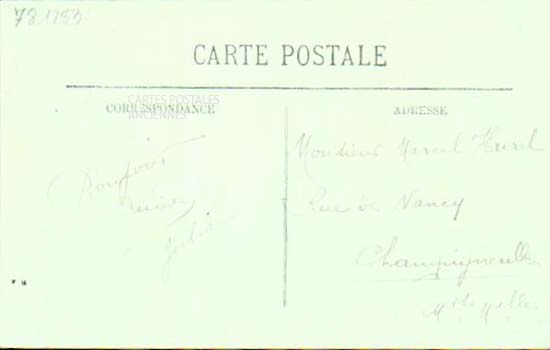 78.1783
CARTE POSTALE
CORRESPONDANCE
CARTES POSTALES
ANCIENNES
Bonjour
Julia
ADRESSE
Monsieur Marcel Hurel
Rue de Nancy
Champigneulles
Mthe Mlle